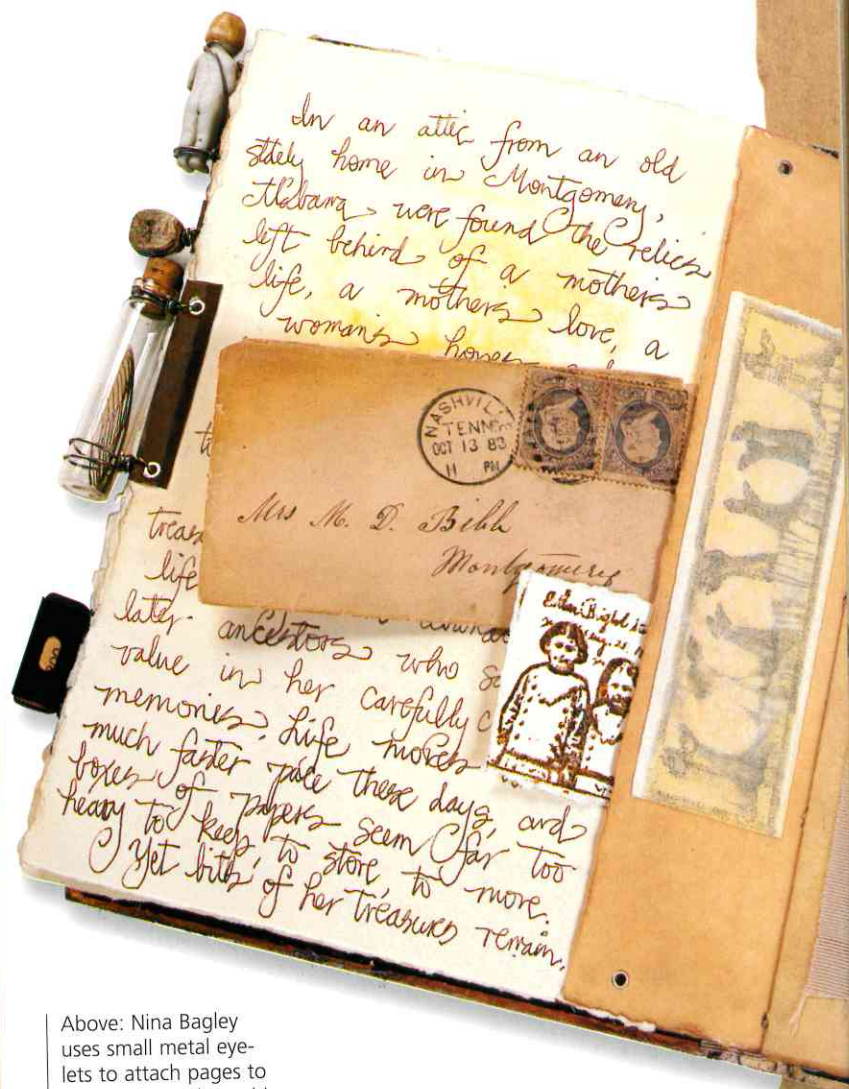 In an attic from an old
stately home in Montgomery,
Alabama, were found the relics
left behind of a mothers
life, a mothers love, a
woman's
NASHVILL
TENN
OCT 13 83
11 PM
Mrs M. D. Bibb
Montgomery
treas
life
later. ancestors who
value in her carefully
memories. Life moves
much faster pace these days, and
boxes of papers seem far too
heavy to keep, to store, to move.
Yet bits of her treasures remain.
Above: Nina Bagley
uses small metal eye-
lets to attach pages to